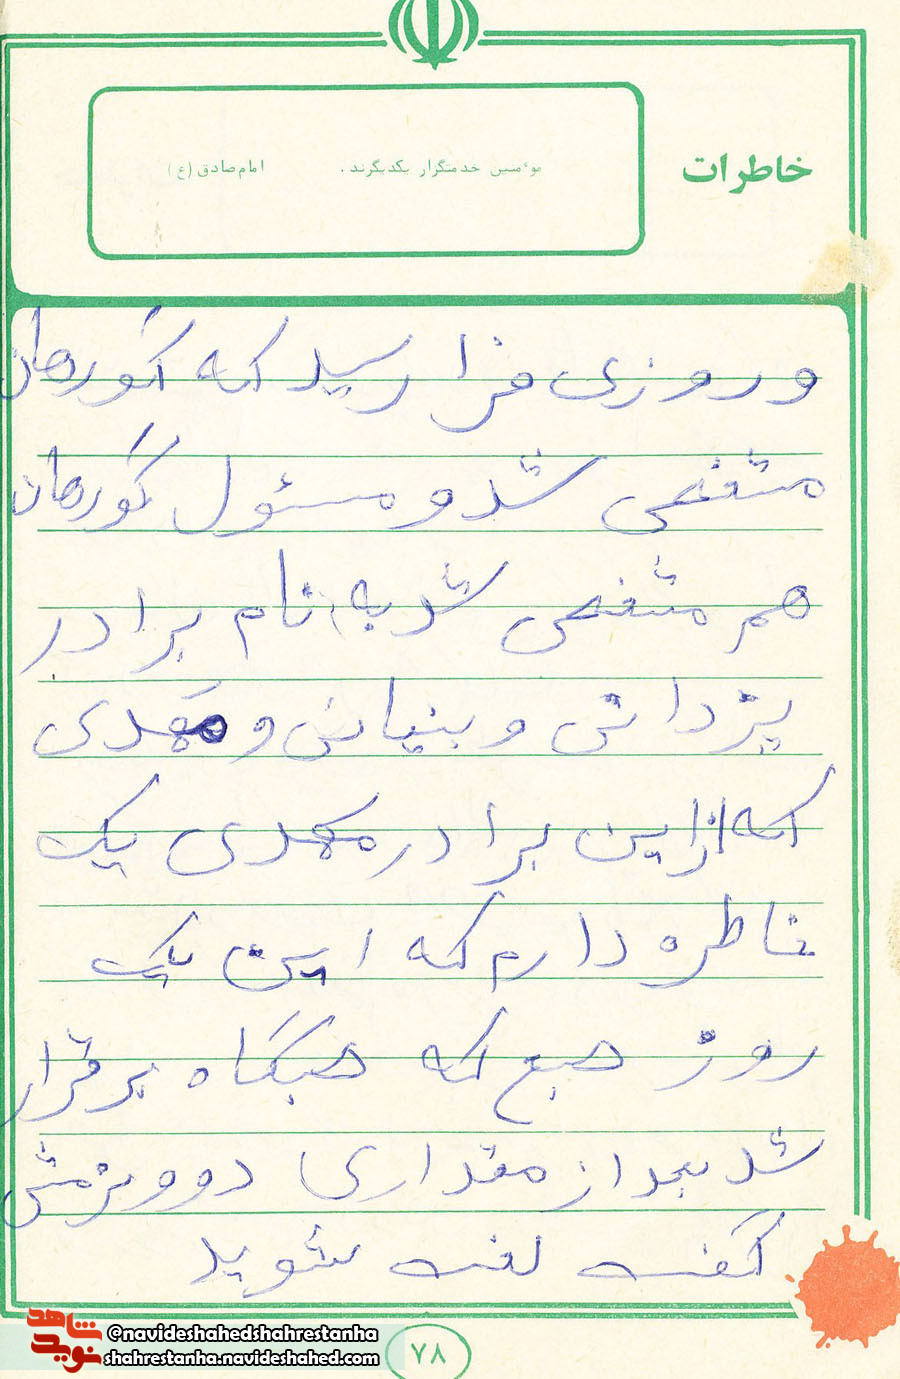 خاطرات
موءمنین خدمتگزار یکدیگرند. امام صادق (ع)
و روزی فرا رسید که گورهان
متفحی شد و مسئول گورهان
هم متفحی شد به نام برادر
یزدانی و بنیانی و مهدی
که از این برادر مهدی یک
خاطره دارم که این یک
روز صبح که صبگاه برقرار
شد بعد از مقداری دو و نرمش
گفت لخت شوید
شاهد
نوید
@navideshahedshahrestanha
shahrestanha.navideshahed.com
۷۸